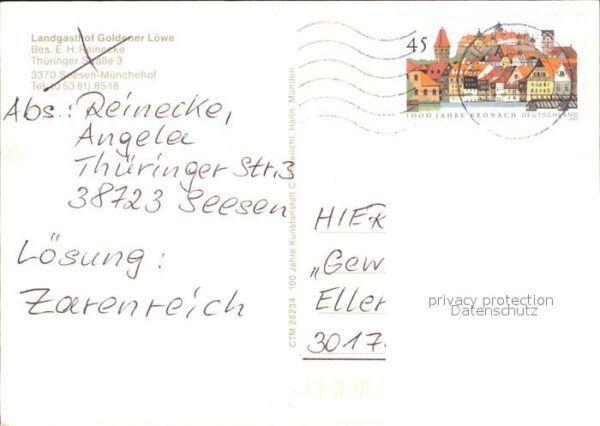 Landgasthof Goldener Löwe
Bes. E. H. Reinecke
Thüringer Straße 3
3370 Seesen-Münchehof
Tel. (0 53 81) 85 18
Abs.: Reinecke,
Angela
Thüringer Str. 3
38723 Seesen
Lösung:
Zarenreich
CTM 28234 100 Jahre Kunstanstalt Hann. Münden
45
1000 JAHRE KRONACH DEUTSCHLAND
HIER
„Gew
Eller
3017
privacy protection
Datenschutz